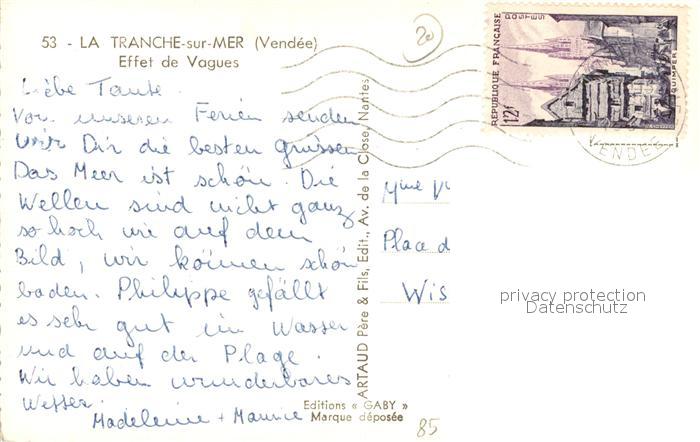 53 - LA TRANCHE-sur-MER (Vendée)
Effet de Vagues
20
RÉPUBLIQUE FRANÇAISE
POSTES
12f
QUIMPER
VENDEE
Liebe Tante.
Von unseren Ferien senden
wir Dir die besten Grüssen
Das Meer ist schön. Die
Wellen sind nicht ganz
so hoch wie auf dem
Bild, wir können schön
baden. Philippe gefällt
es sehr gut im Wasser
und auf der Plage.
Wir haben wunderbares
Wetter.
Madeleine + Maurice
ARTAUD Père & Fils, Edit., Av. de la Close, Nantes
Mme
Place d
Wis
privacy protection
Datenschutz
Editions « GABY »
Marque déposée
85